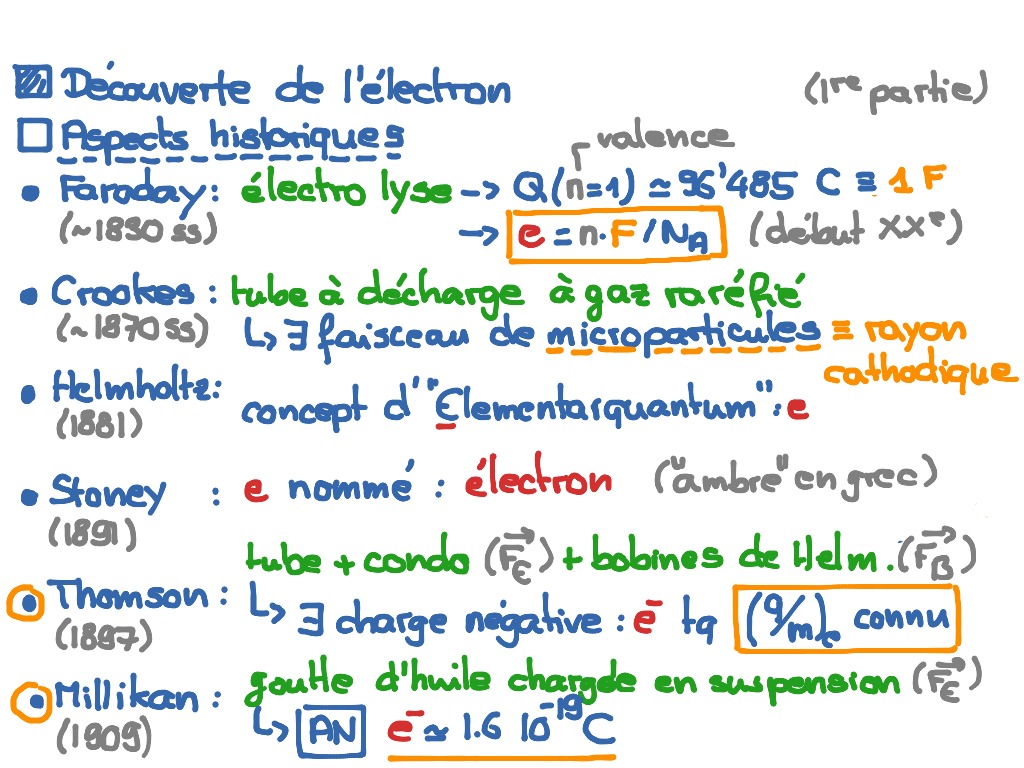 Découverte de l'électron (1re partie)
Aspects historiques
valence
• Faraday: électrolyse -> Q(n=1) ≃ 96'485 C ≡ 1 F
(~1830 ss) -> e = n·F/NA (début XXe)
• Crookes: tube à décharge à gaz raréfié
(~1870 ss) ↳ ∃ faisceau de microparticules ≡ rayon
cathodique
• Helmholtz: concept d'"Elementarquantum": e
(1881)
• Stoney : e nommé : électron ("ambre" en grec)
(1891)
tube + condo (F⃗E) + bobines de Helm. (F⃗B)
• Thomson: ↳ ∃ charge négative : e⁻ tq (q/m)e connu
(1897)
• Millikan: goutte d'huile chargée en suspension (F⃗E)
(1909) ↳ AN e⁻ ≃ 1.6 10⁻¹⁹ C